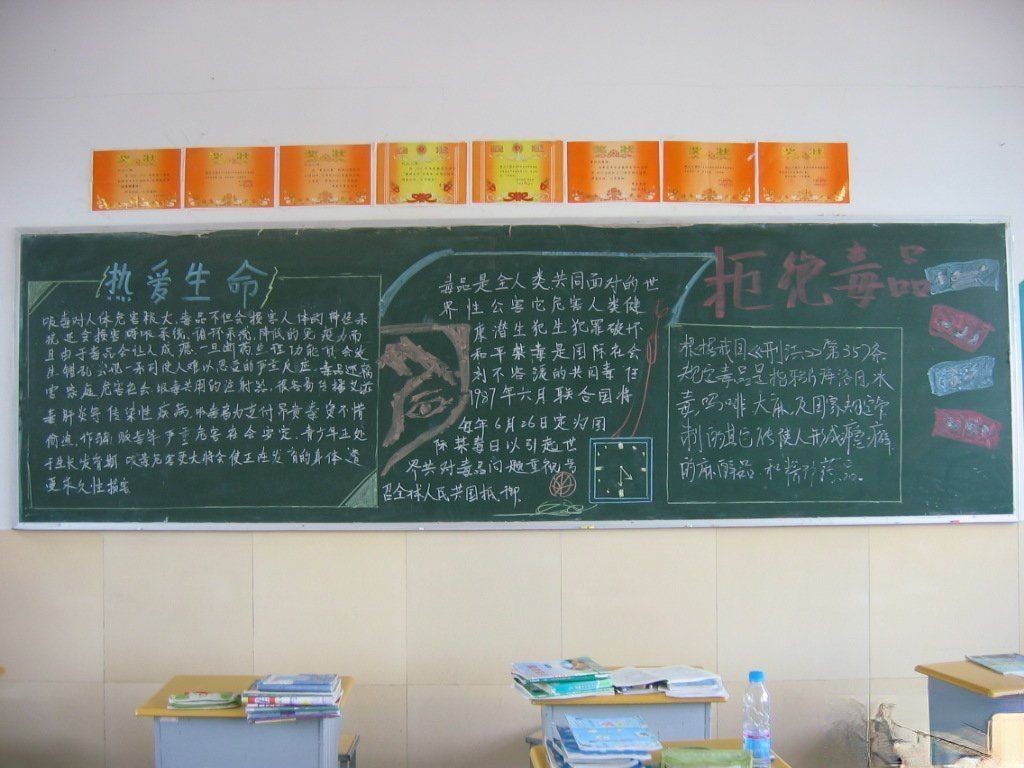 热爱生命
吸毒对人体危害极大,毒品不但会损害人体的神经系
统还会损害呼吸系统、循环系统,降低的免疫力而
且由于毒品会让人成瘾,一旦断药生理功能就会发
生错乱,出现一系列使人难以忍受的严重反应。毒品还祸
害家庭,危害社会,吸毒共用的注射器,很容易传播艾滋
毒肝炎等传染性疾病,吸毒者为支付昂贵毒资不惜
偷盗、作骗、贩毒等严重危害社会安定,青少年正处
于生长发育期,吸毒危害更大将会使正在发育的身体遭
更永久性损害
毒品是全人类共同面对的世
界性公害它危害人类健
康滋生犯生犯罪破坏
和平禁毒是国际社会
刻不容缓的共同责任
1987年六月联合国将
每年6月26日定为国
际禁毒日以引起世
界共对毒品问题重视号
召全球人民共同抵御
拒绝毒品
根据我国《刑法》第357条
规定毒品是指鸦片海洛因、冰
毒、吗啡、大麻及国家规定管
制的其它能使人形成瘾癖
的麻醉品和精神药品。